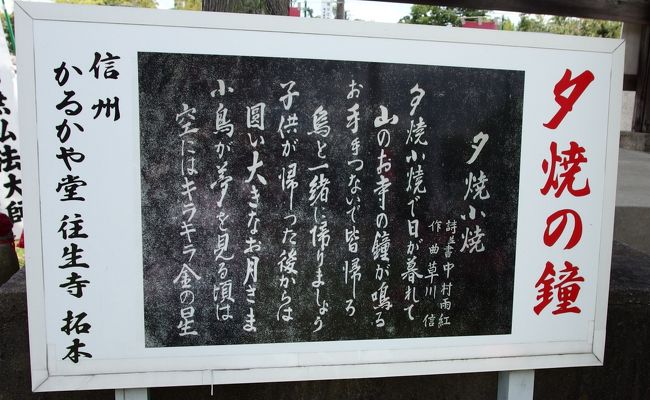 夕焼の鐘
夕焼小焼
詩並書 中村雨紅
作曲 草川信
夕焼小焼で日が暮れて
山のお寺の鐘が鳴る
お手手つないで皆帰る
烏と一緒に帰りましょう
子供が帰った後からは
圓い大きなお月さま
小鳥が夢を見る頃は
空にはキラキラ金の星
信州
かるかや堂 往生寺 拓本
仏法大師